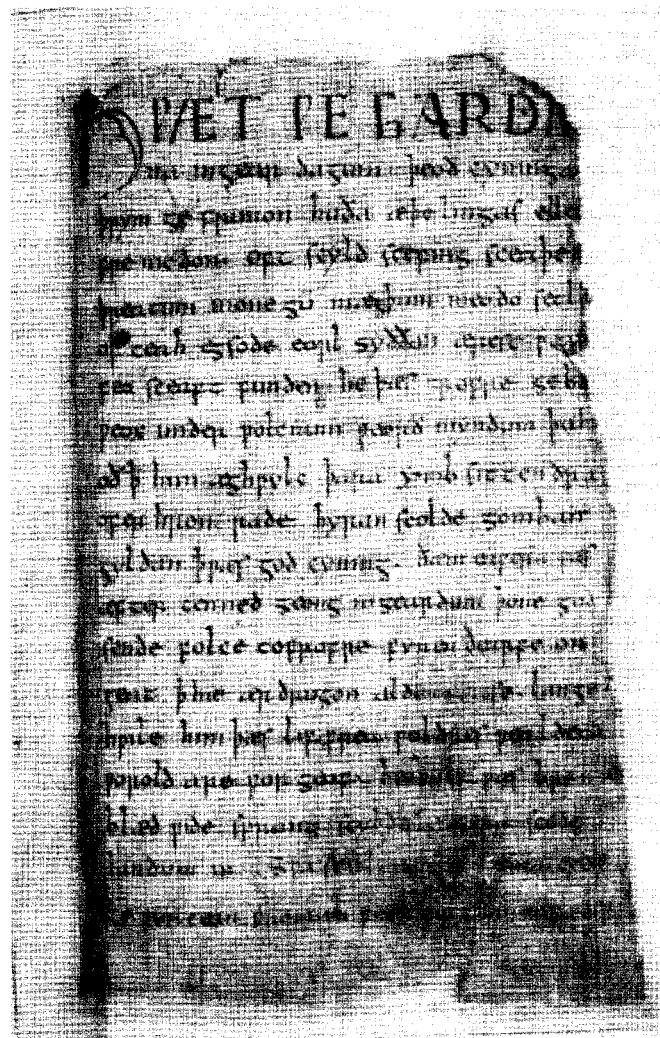 HǷÆT ǷE GARDE
na ingear dagum þeod cyninga
þrym ge frunon huða æþelingas elle
fremedon. oft scyld scefing sceaþe
þreatum monegū mægþum meodo setla
of teah egsode eorl syððan ærest ƿear
fea sceaft funden he þæs frofre geba
ƿeox under ƿolcnum ƿeorð myndum þah
oð þ him æghƿylc þara ymb sittendra
ofer hron rade hyran scolde gomban
gyldan þ ƿæs god cyning. ðæm eafera ƿæs
æfter cenned geong ingeardum þone god
sende folce tofrofre fyren ðearfe on
geat þ hie ær drugon aldor ase. lange
hƿile him þæs lif frea ƿuldres ƿealdend
ƿorold are for geaf. beoƿulf ƿæs breme
blæd ƿide sprang scyldes eafera scede
landum in. sƿa
ge ƿyrcean fromum feoh